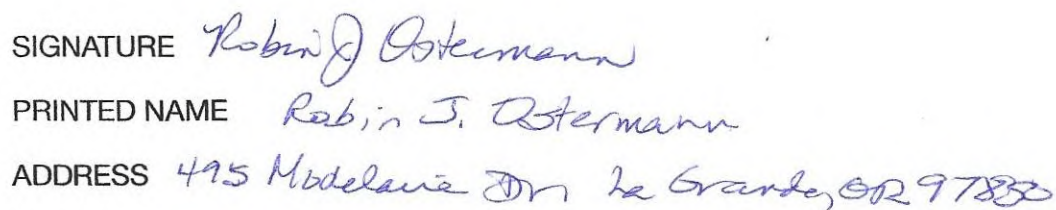 SIGNATURE Robin J Ostermann
PRINTED NAME Robin J. Ostermann
ADDRESS 495 Modelaire Dr La Grande, OR 97850